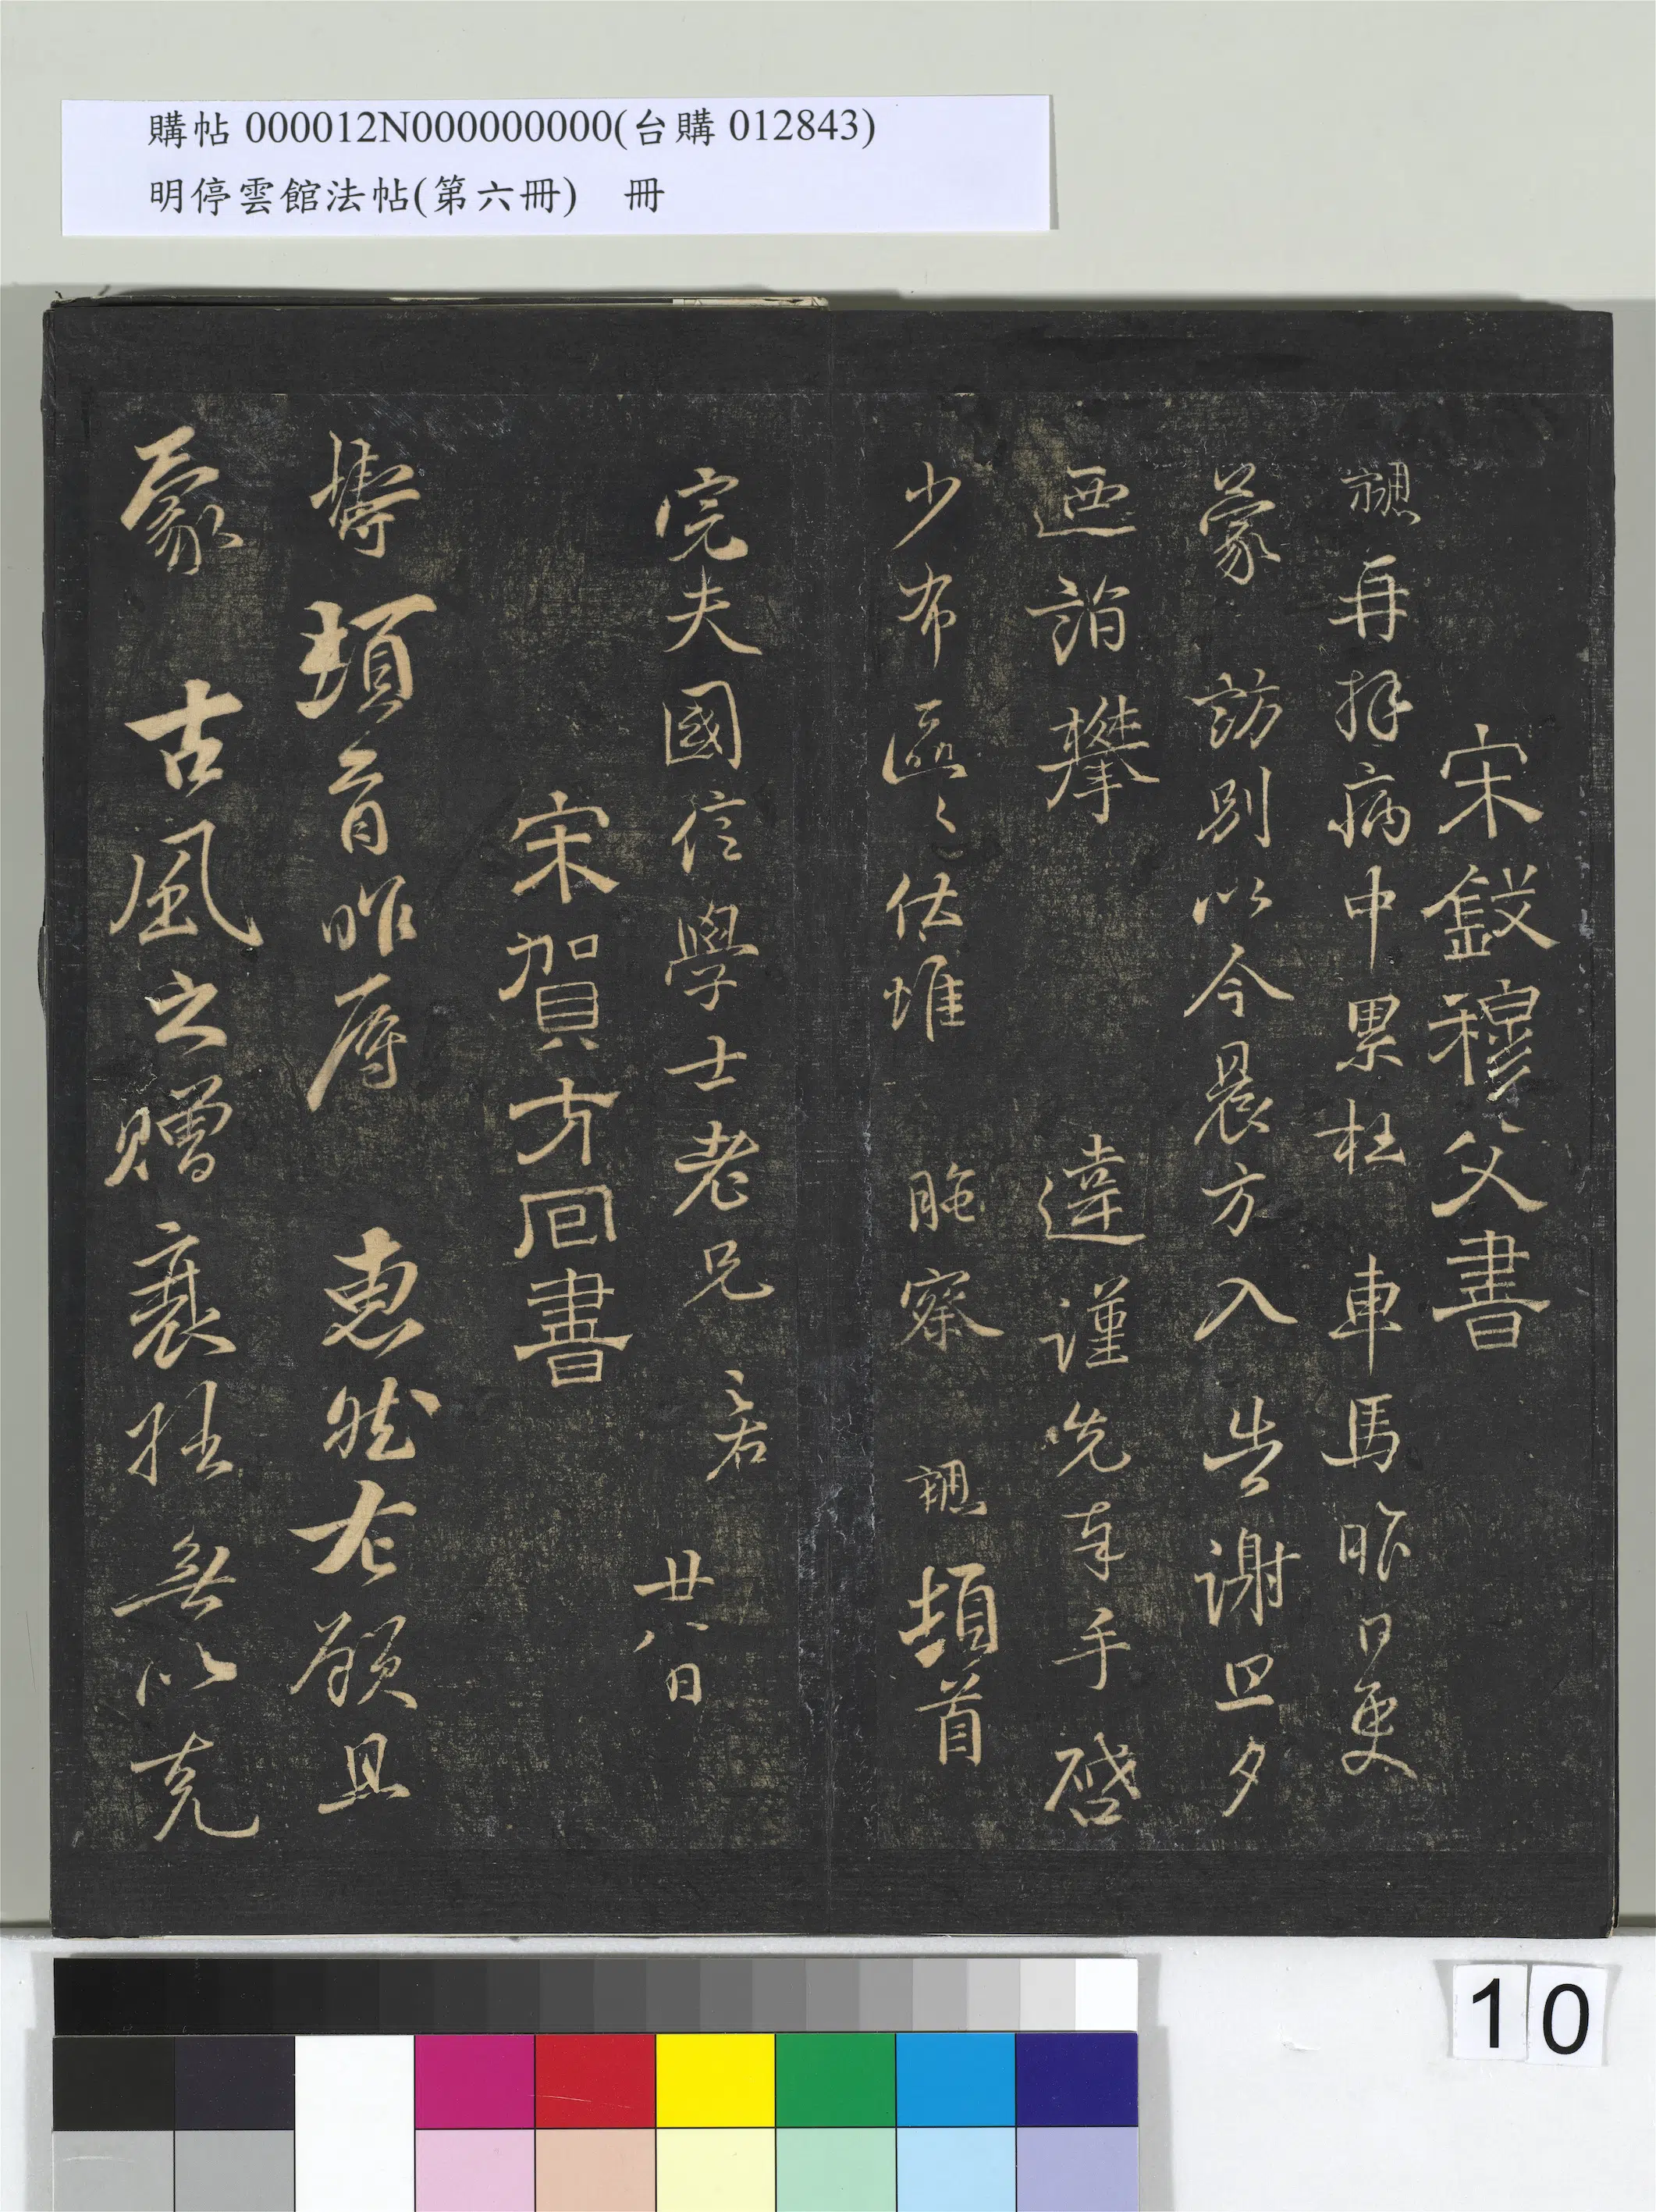 購帖 000012N000000000(台購 012843)
明停雲館法帖(第六冊) 冊
宋錢穆父書
勰再拜病中累枉車馬昨日更
蒙訪別以今晨方入告謝旦夕
迺詣攀違謹先奉手啓
少布區〻伏惟察勰頓首
完夫國信學士老兄
廿八日
宋賀方回書
鑄頓首昨辱惠然左顧且
蒙古風之贈衰拙無以克
10